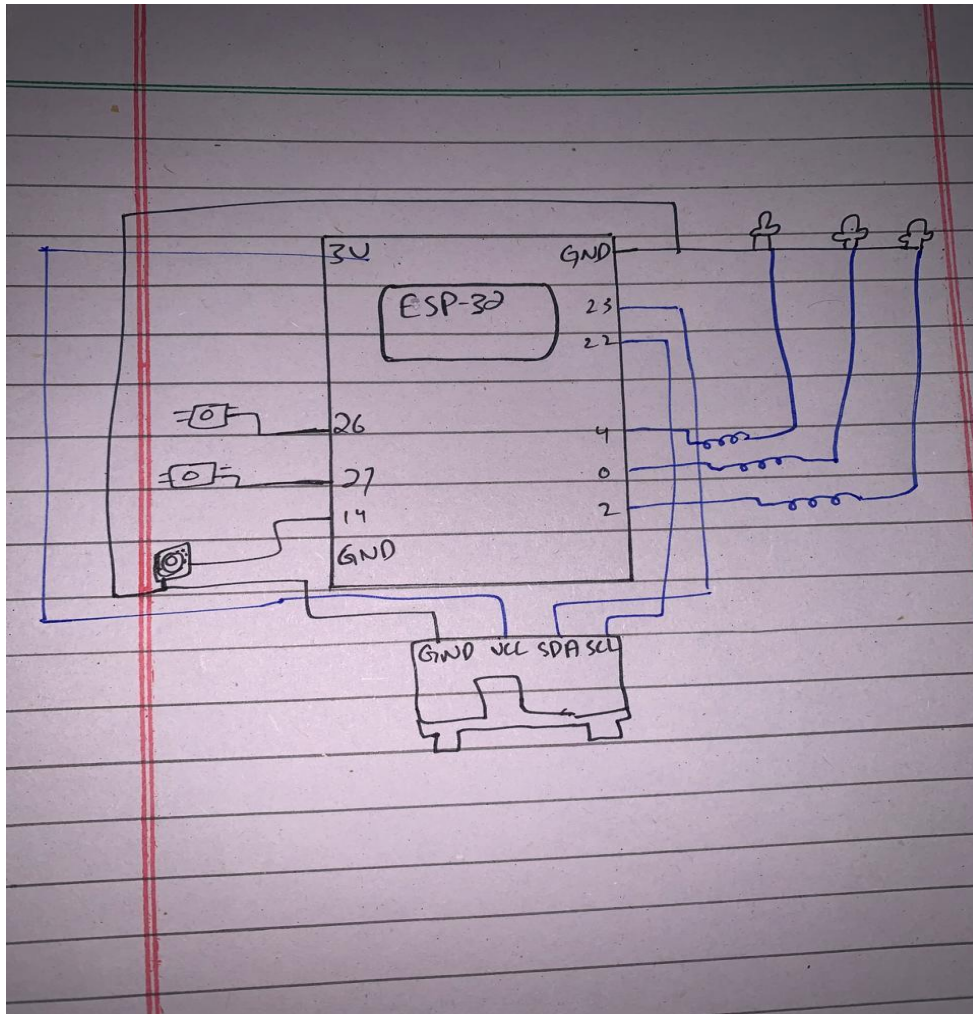 3V GND
ESP-32
23
22
26
4
27
0
14
2
GND
GND VCC SDA SCL